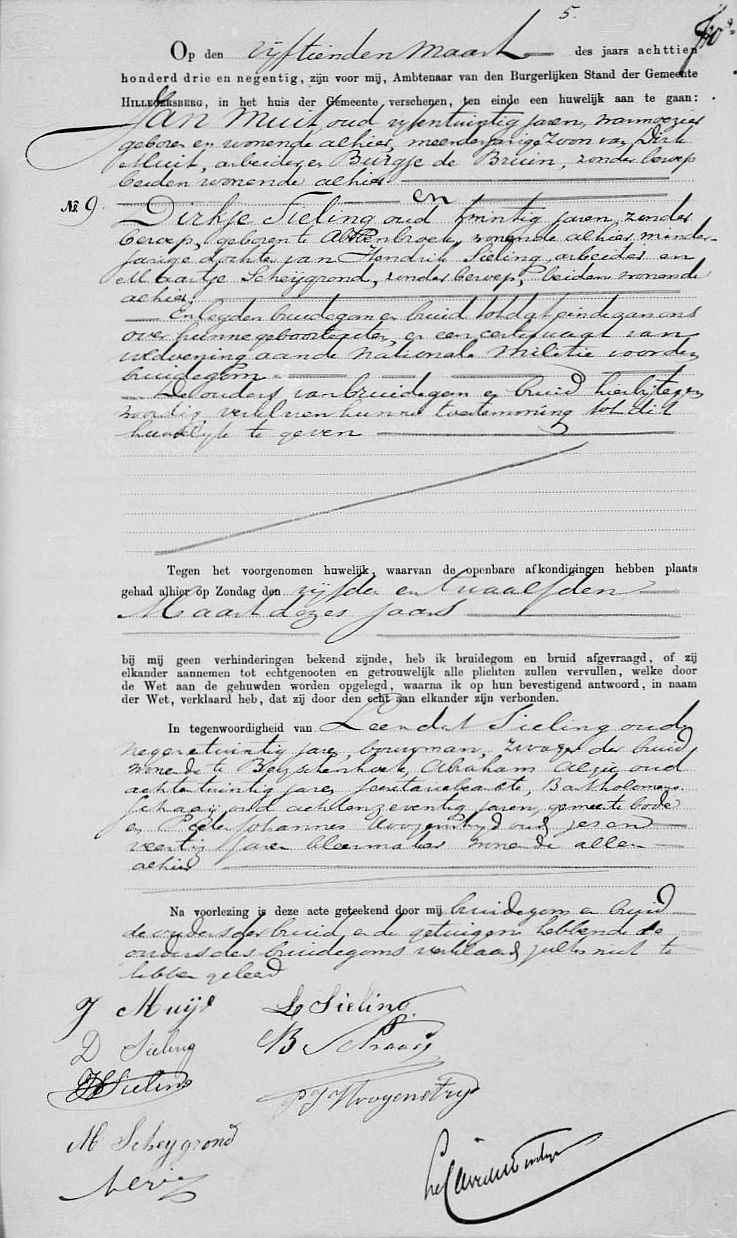 5.
Op den vijftienden Maart des jaars achttien
honderd drie en negentig, zijn voor mij, Ambtenaar van den Burgerlijken Stand der Gemeente
HILLEGERSBERG, in het huis der Gemeente verschenen, ten einde een huwelijk aan te gaan:
Jan Muit, oud vijfentwintig jaren,
geboren en wonende alhier, meerderjarige zoon van Dirk
Muit, arbeider en Burgje de Bruin, zonder beroep
beiden wonende alhier
en
No. 9. Dirkje Sieling oud twintig jaren, zonder
beroep, geboren te wonende alhier, minder-
jarige dochter van Hendrik Sieling, arbeider en
Maartje Scheijgrond, zonder beroep, beiden wonende
alhier.
En legden bruidegom en bruid tot dat einde aan ons
over hunne geboorteacten, en een certificaat van
voldoening aan de Nationale Militie voor den
bruidegom
De ouders van bruidegom en bruid hierbij tegen
woordig verklaren hunne toestemming tot dit
huwelijk te geven
Tegen het voorgenomen huwelijk, waarvan de openbare afkondigingen hebben plaats
gehad alhier op Zondag den vijfden en twaalfden
Maart dezes jaars
bij mij geen verhinderingen bekend zijnde, heb ik bruidegom en bruid afgevraagd, of zij
elkander aannemen tot echtgenooten en getrouwelijk alle plichten zullen vervullen, welke door
de Wet aan de gehuwden worden opgelegd, waarna ik op hun bevestigend antwoord, in naam
der Wet, verklaard heb, dat zij door den echt aan elkander zijn verbonden.
In tegenwoordigheid van Leendert Sieling oud
negenentwintig jaren, bouwman, zwager der bruid,
wonende te Bergschenhoek, Abraham oud
achtentwintig jaren, secretariebeambte, Bartholomeus
Schaaij oud achtenzeventig jaren, gemeentebode
en Pieter Johannes Hoogenstrijd oud zes en
veertig jaren kleermaker wonende allen
alhier
Na voorlezing is deze acte geteekend door mij bruidegom en bruid
de ouders der bruid, en de getuigen hebbende de
ouders des bruidegoms verklaard zulks niet te
hebben geleerd
J Muijt L Sieling
D Sieling B Schaaij
H Sieling P J Hoogenstryd
M Scheygrond